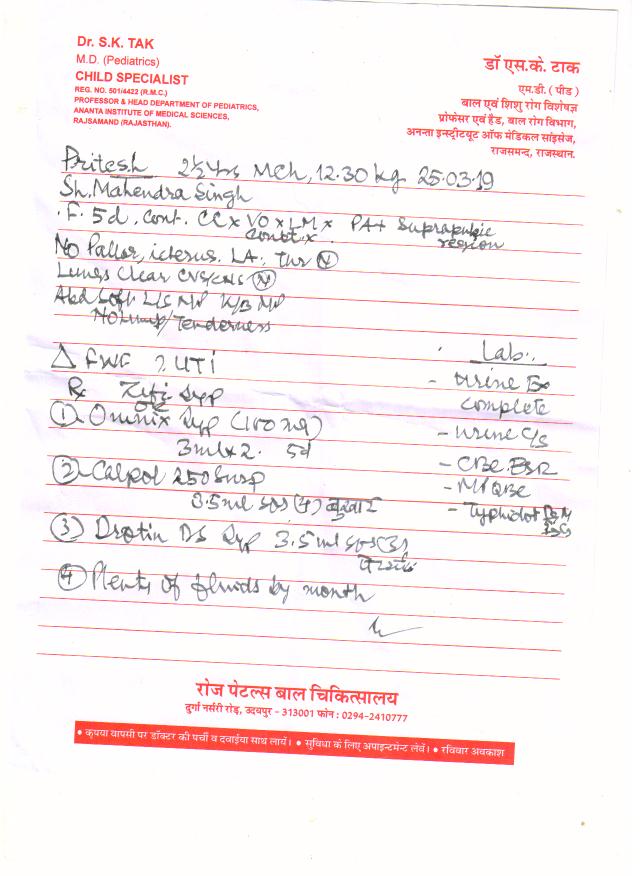 Dr. S.K. TAK
M.D. (Pediatrics)
CHILD SPECIALIST
REG. NO. 501/4422 (R.M.C.)
PROFESSOR & HEAD DEPARTMENT OF PEDIATRICS,
ANANTA INSTITUTE OF MEDICAL SCIENCES,
RAJSAMAND (RAJASTHAN).
डॉ एस.के. टाक
एम.डी. ( पीड )
बाल एवं शिशु रोग विशेषज्ञ
प्रोफेसर एवं हैड, बाल रोग विभाग,
अनन्ता इन्स्टीट्यूट ऑफ मेडिकल सांइसेज,
राजसमन्द, राजस्थान.
Pritesh 2½ yrs MCh, 12.30 kg 25.03.19
Sh. Mahendra Singh
F. 5d. cont. CC x VO x LM x PA+ Suprapubic
Const. x region
No Pallor, icterus. LA. Thr (N)
Lungs Clear CVS/CNS (N)
Abd Soft L/S NP K/B NP
No Lump/Tenderness
Δ FWF ? UTI
Rx Zifi Syp
OR
① Omnix Syp (100 mg)
3ml x 2. 5d
② Calpol 250 Susp
3.5ml sos (4) बुखार
③ Drotin DS Syp 3.5ml sos (3)
④ Plenty of fluids by month
Lab:
- Urine Ex
complete
- Urine C/S
- CBC. ESR
- MP QBC
- Typhidot IgM
IgG
रोज पेटल्स बाल चिकित्सालय
दुर्गा नर्सरी रोड़, उदयपुर - 313001 फोन : 0294-2410777
• कृपया वापसी पर डॉक्टर की पर्ची व दवाईया साथ लायें। • सुविधा के लिए अपाइन्टमेन्ट लेवें। • रविवार अवकाश